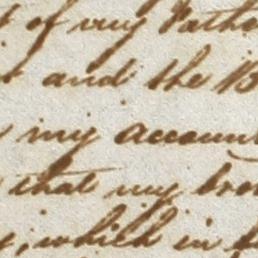 of my Fathe
and the B
my account
that my bro
, which in